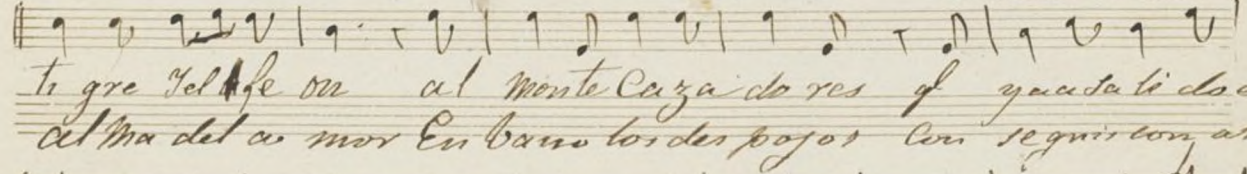 ti gre Yel fe on al monte Caza do res q ya a sa li do e
al ma del a mor En bano los des pojos Con se guis con as